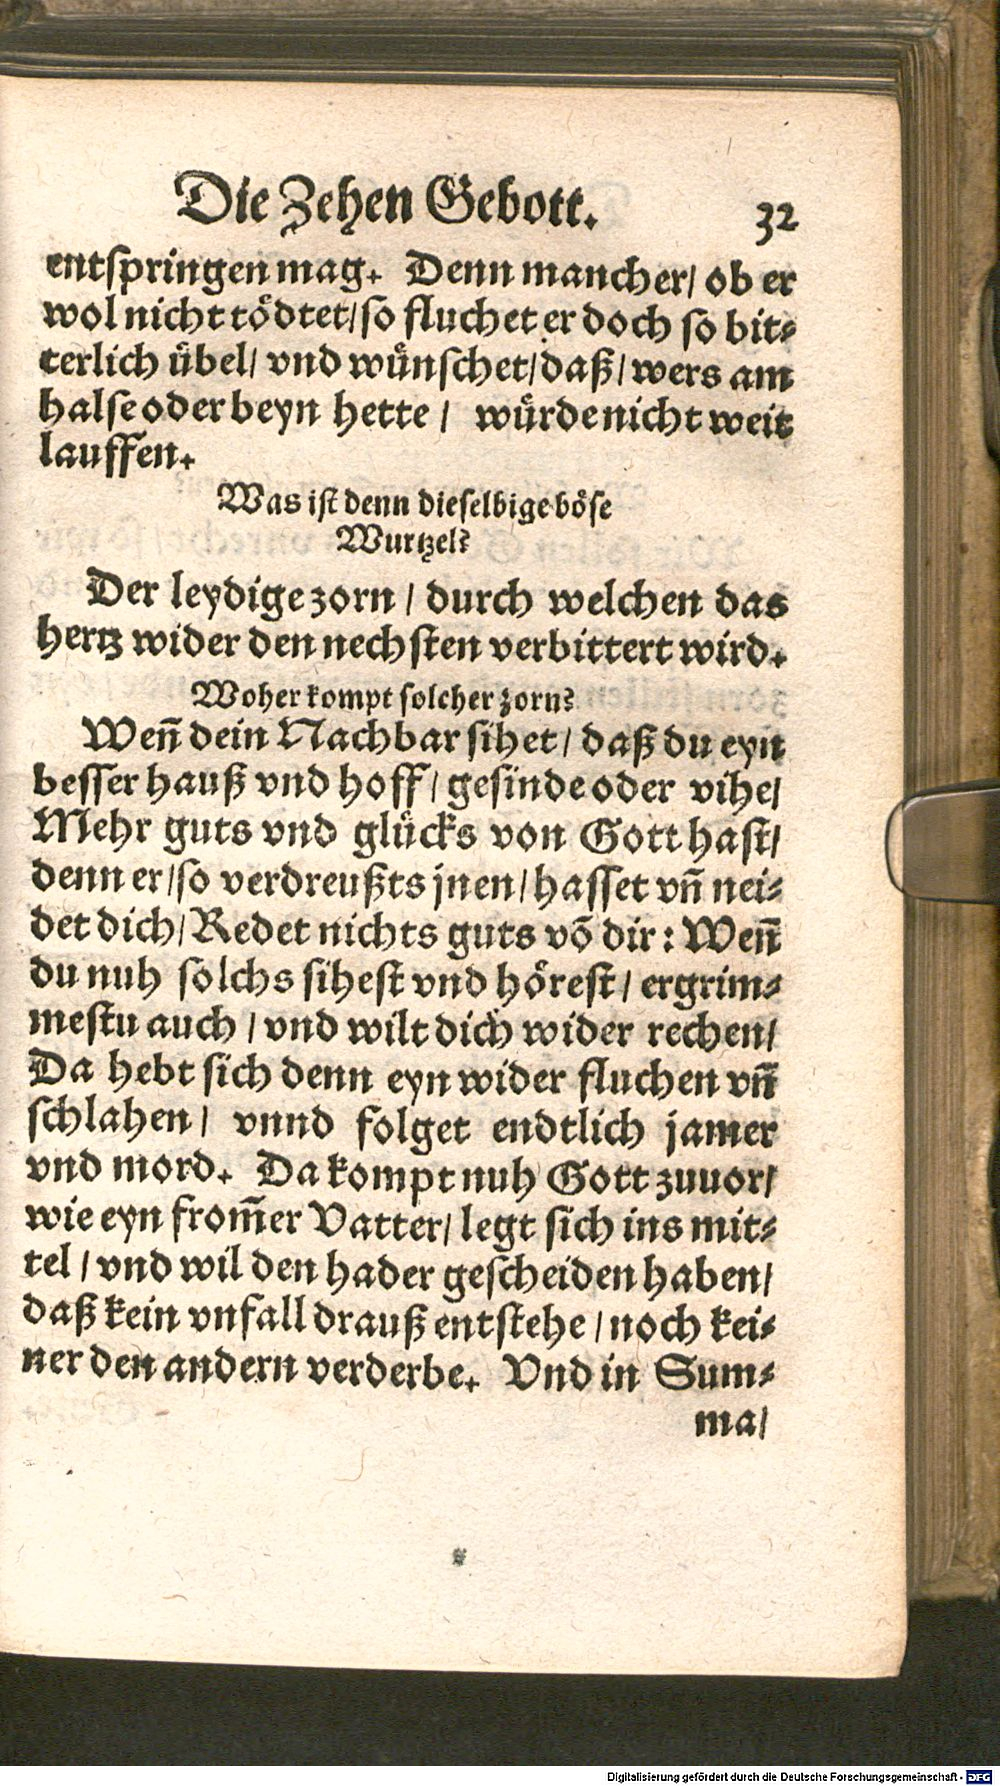 Die Zehen Gebott. 32
entspringen mag. Denn mancher/ ob er
wol nicht tödtet/ so fluchet er doch so bit⸗
terlich übel/ vnd wünschet/ daß/ wers am
halse oder beyn hette / würde nicht weit
lauffen.
Was ist denn dieselbige böse
Wurtzel?
Der leydige zorn / durch welchen das
hertz wider den nechsten verbittert wird.
Woher kompt solcher zorn?
Weñ dein Nachbar sihet / daß du eyn
besser hauß vnd hoff / gesinde oder vihe/
Mehr guts vnd glücks von Gott hast/
denn er/ so verdreußts jnen/ hasset vñ nei⸗
det dich/ Redet nichts guts võ dir: Weñ
du nuh solchs sihest vnd hörest / ergrim⸗
mestu auch / vnd wilt dich wider rechen/
Da hebt sich denn eyn wider fluchen vñ
schlahen / vnnd folget endtlich jamer
vnd mord. Da kompt nuh Gott zuuor/
wie eyn from̃er Vatter/ legt sich ins mit⸗
tel / vnd wil den hader gescheiden haben/
daß kein vnfall drauß entstehe / noch kei⸗
ner den andern verderbe. Vnd in Sum⸗
ma/
Digitalisierung gefördert durch die Deutsche Forschungsgemeinschaft - DFG